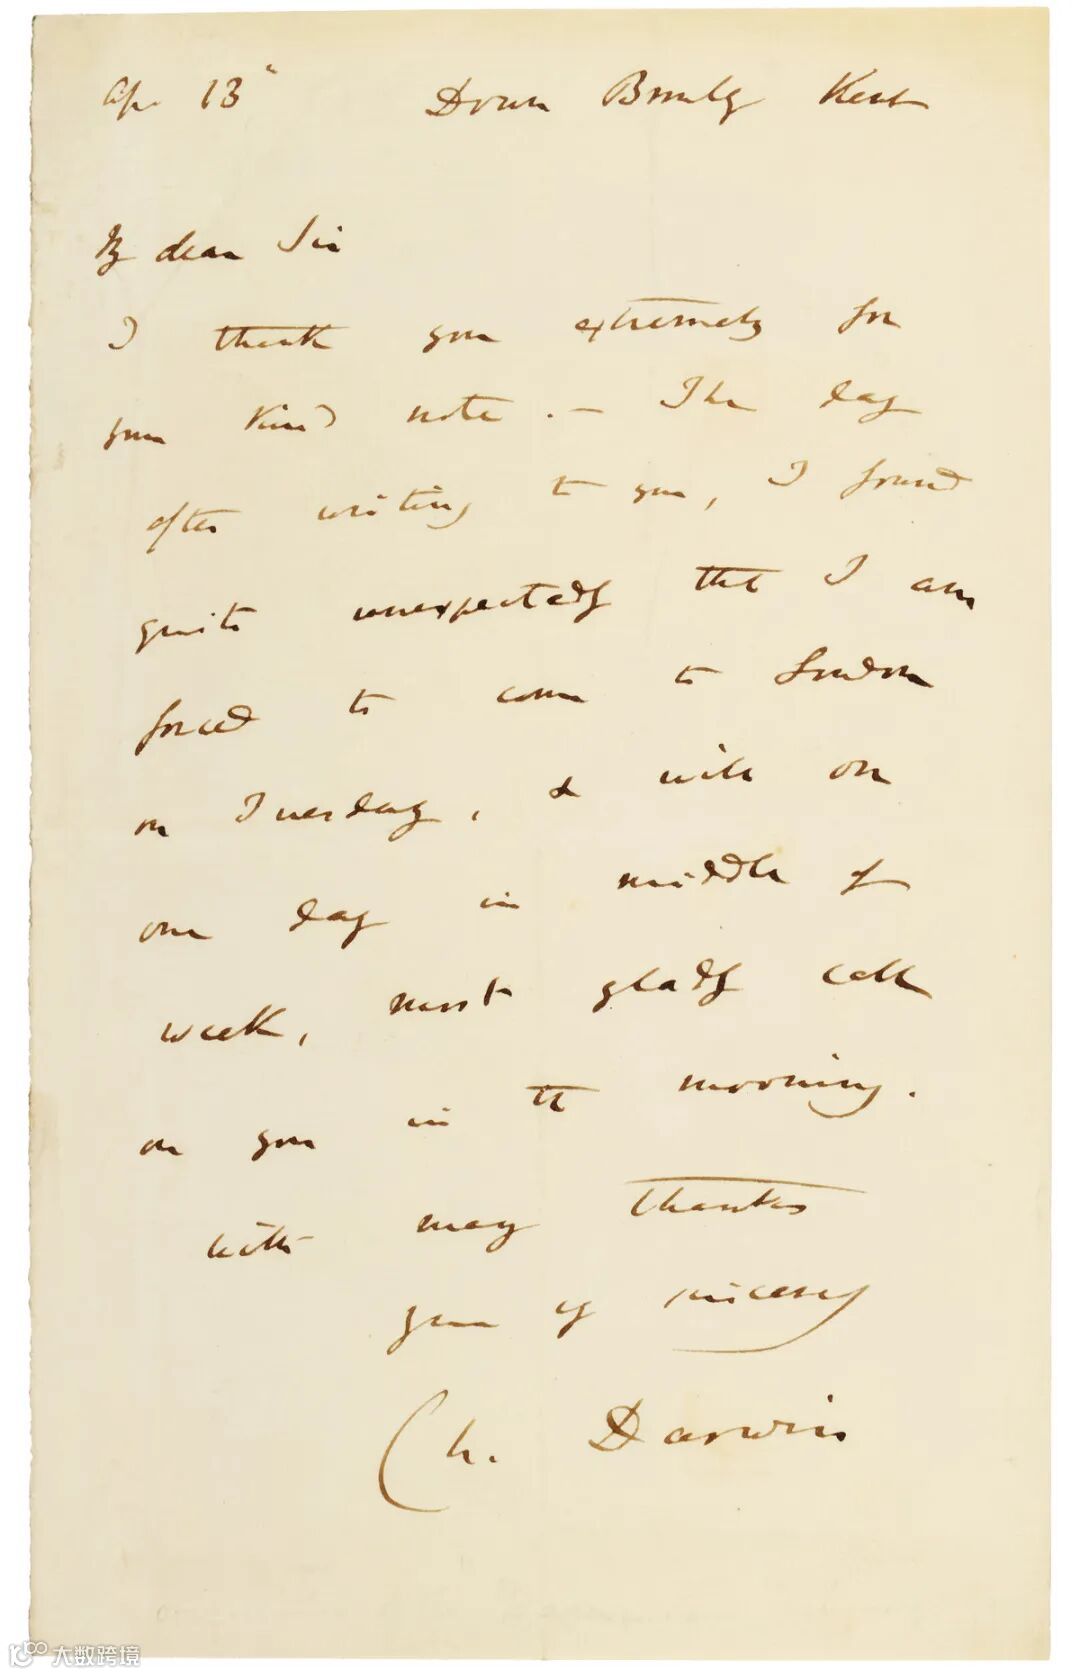 Ap. 13" Down Bromley Kent
My dear Sir
I thank you extremely for
your kind note. — The day
after writing to you, I found
quite unexpectedly that I am
forced to come to London
on Tuesday, & will on
one day in middle of
week, most gladly call
on you in the morning.
With many thanks
yours very sincerely
Ch. Darwin
大数跨境